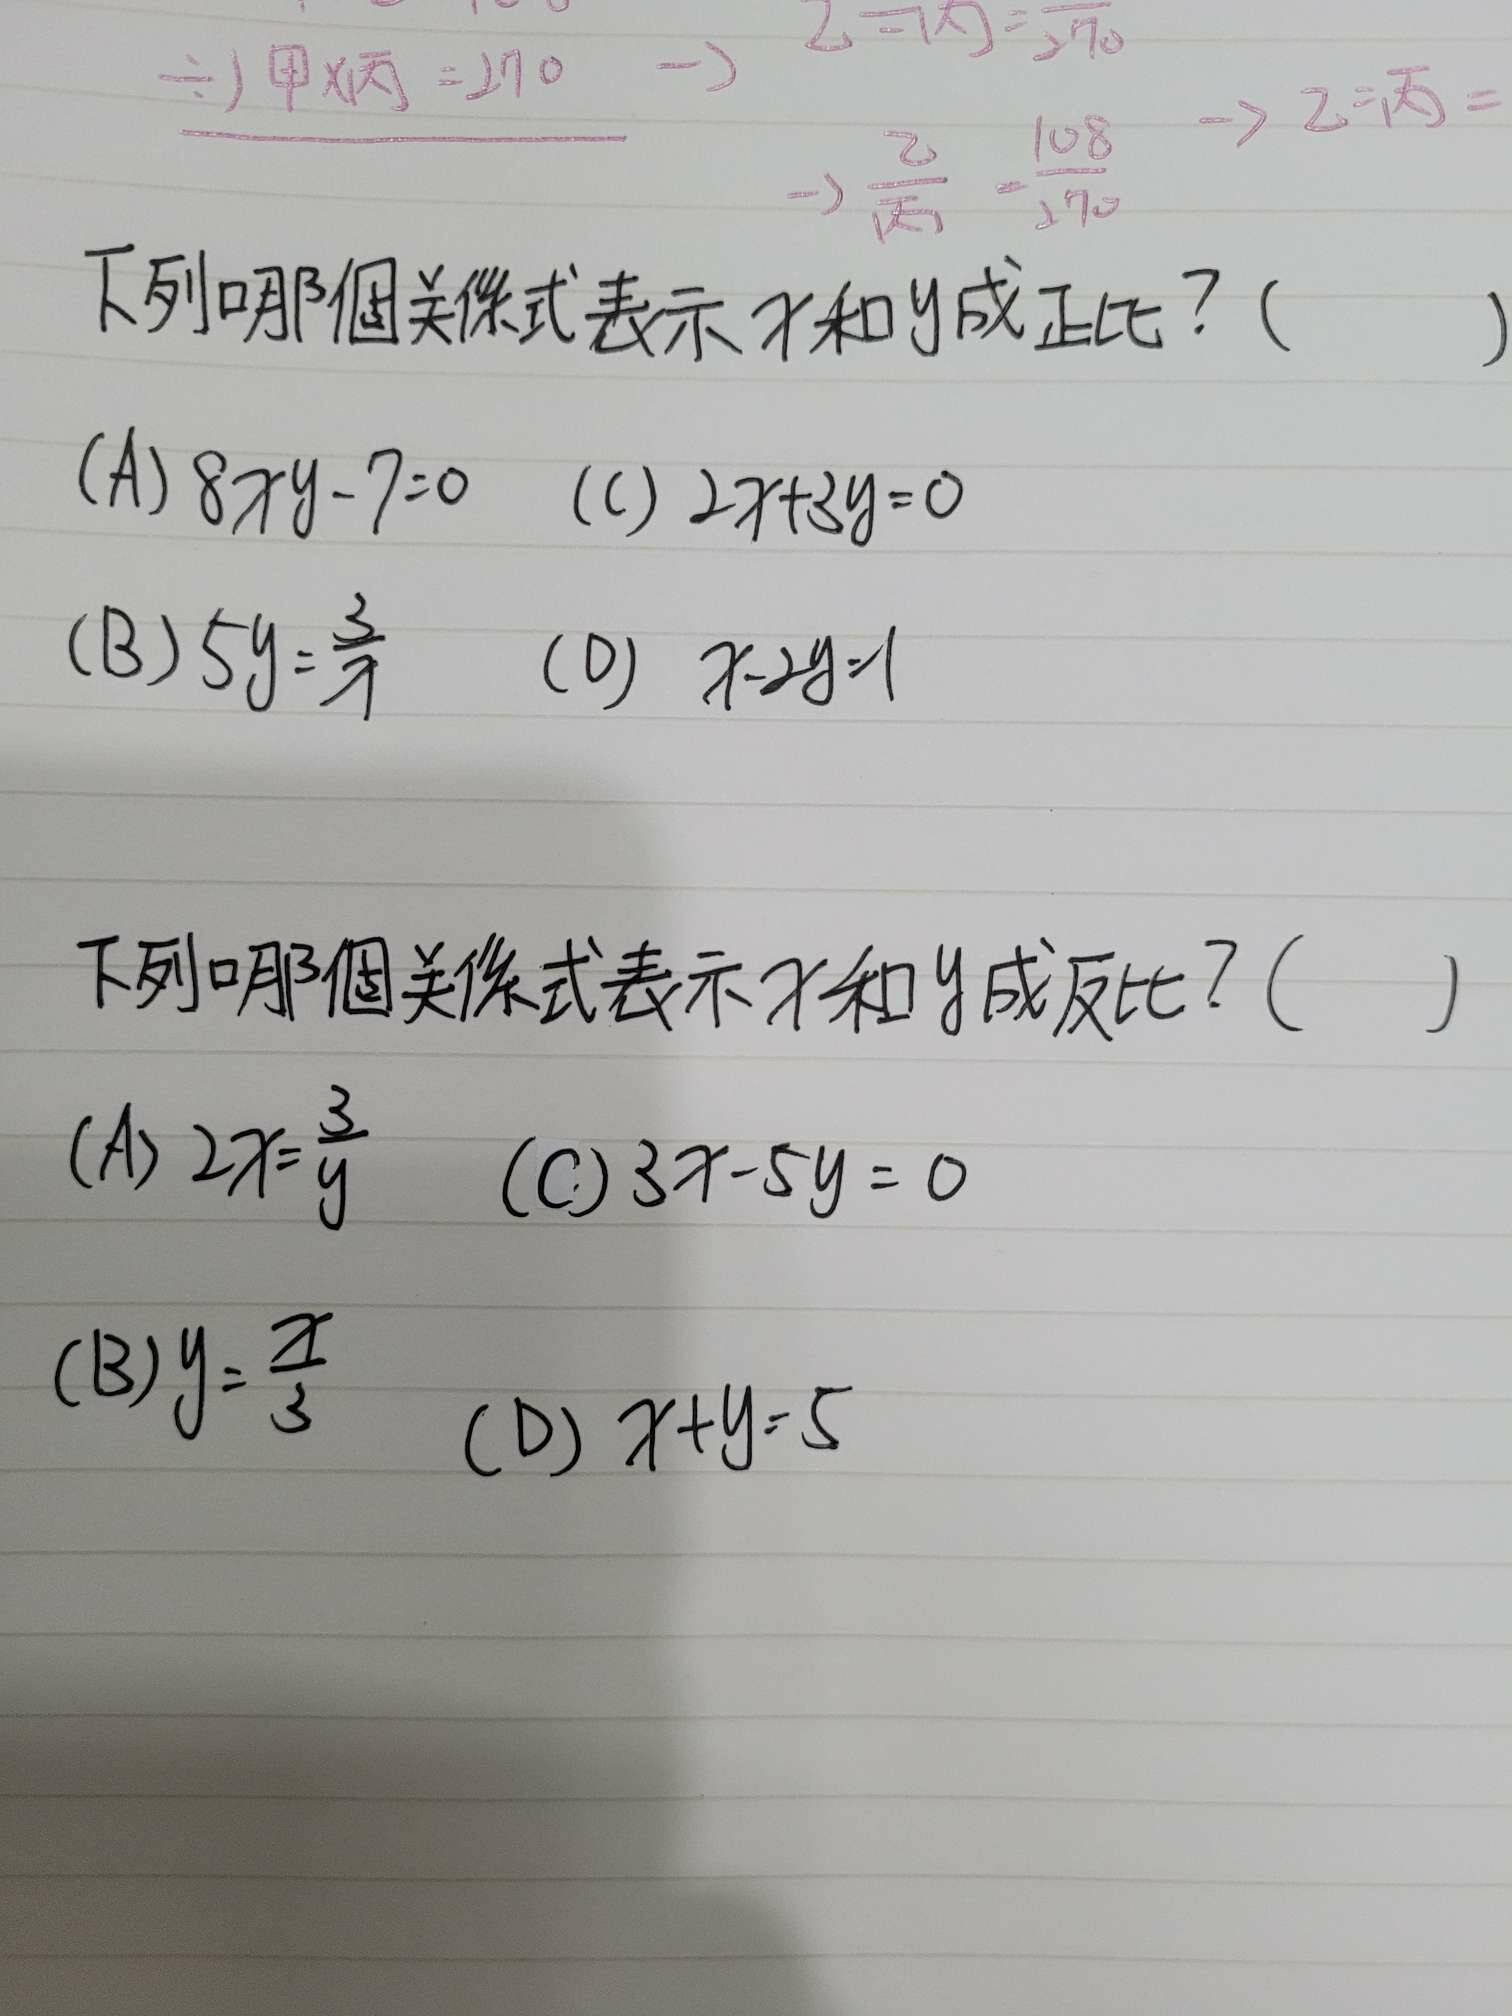 ÷) 甲x丙 = 270 → 乙=丙= /270
→ 乙/丙 = 108/270 → 乙=丙=
下列哪個关係式表示x和y成正比?( )
(A) 8xy-7=0 (C) 2x+3y=0
(B) 5y=3/x (D) x-2y=1
下列哪個关係式表示x和y成反比?( )
(A) 2x=3/y (C) 3x-5y=0
(B) y=x/3 (D) x+y=5